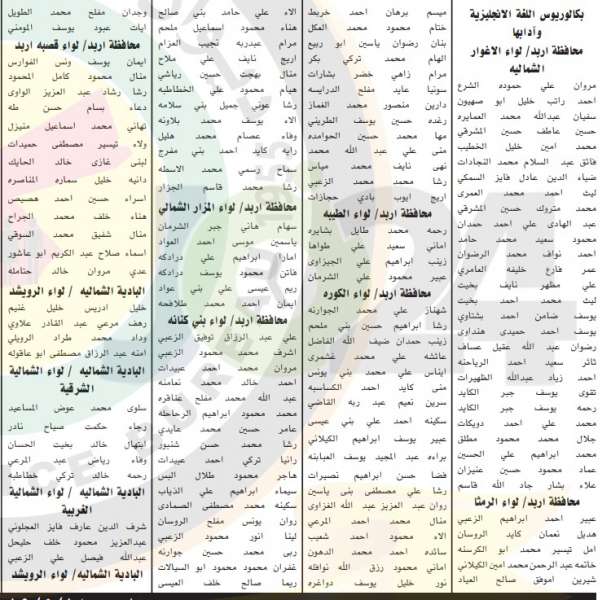 بكالوريوس اللغة الانجليزية
وآدابها
محافظة اربد/ لواء الاغوار
الشماليه
مروان علي حموده الشرع
احمد راتب خليل ابو صهيون
سفيان عبدالله محمد العمايره
حسين عاطف حسين المشرقي
محمد امين خليل الخطيب
فائق عبد السلام محمد النجادات
ضياء الدين عادل فايز السمكي
ليث احمد محمد العمري
محمد متروك حسين المشرقي
عبد الهادي علي احمد حمدان
محمود سعيد محمد حامد
احمد نواف محمد الرضوان
عمر فارع خليفه العامري
علي مظهر نايف بخيت
ليث محمد احمد بخيت
يوسف ضامن احمد بشتاوي
يوسف احمد حميدي هنداوي
رضوان عبد الله عقيل عساف
ثائر سعيد احمد الرياحنه
احمد زياد عبدالله الظهيرات
تقوى يوسف جبر الكايد
رحمه يوسف جبر الكايد
محمد علي احمد دويكات
جلال محمد محمود مطلق
محمد ابراهيم علي الحسين
عماد محمود حسين عنيزان
علاء بشار جاد الله قاسم
محافظة اربد/ لواء الرمثا
عبير احمد ابراهيم الزعبي
هديل نعمان كايد الروسان
امل تيسير محمد ابو الكرسنه
خاتمه عبد الرحمن محمد امين الكيلاني
شيرين اموفق صالح العياد
ميسم برهان احمد خريط
ختام محمود محمد العكل
بنان رضوان ياسين ابو ربيع
الهام محمد تركي بكر
مرام زاهي خضر بشارات
سونيا عايد مفلح الدرايسه
دارين منصور محمد الغماز
رغده حسين يوسف الطريني
مها محمد حسين الحوامده
منى علي عبد الله محمد
تهى نايف محمد مياس
رشا محمد محمد الزعبي
اريج ايوب بادي حجازات
محافظة اربد/ لواء الطيبه
رحمه محمد طايل بشايره
اماني سعيد علي طواها
زينب ابراهيم علي الجيزاوى
عبير محمود علي الشرمان
محافظة اربد/ لواء الكوره
شهناز علي محمد الجوارنه
رشا ابراهيم حسين بني ملحم
زينب حمدان ضيف الله الفاضل
عائشه علي محمد غشمري
ايناس علي محمد بني يونس
منى كايد احمد الكساسبه
سرين نعيم عبد ربه القاضي
سكينه احمد علي بني عيسى
عبير يوسف ابراهيم الكيلاني
براءه عبد المجيد يوسف العبابنه
فضا حسن ابراهيم نصيرات
رشا علي مصطفى بنى ياسين
روان عبد العزيز عبد الله الغزاوى
منال محمد احمد المرعي
الاء محمود احمد شعيب
سائده احمد محمد الدهون
اماني محمود رزق الله نوافله
نور خليل يوسف دواغره
الاء علي حامد بني صالح
هناء محمود اسماعيل ملحم
مرام عبدربه نجيب العزام
اريج نايف علي ملاح
منال بهجت حسين رياشي
هيام محمود علي الخطاطبه
رشا عوني جميل بني سلامه
الاء يوسف محمد بلاونه
وفاء عصام محمد هليل
رايه كايد احمد بني مفرج
سماح رسمي محمد الاسطه
رشا محمد قاسم الجزار
محافظة اربد/ لواء المزار الشمالي
سهام هاني جبر الشرمان
ياسمين موسى احمد العواد
امارا ابراهيم علي درادكه
فاتن محمود يوسف درادكه
ريم عيسى علي بني عواد
ايمان احمد محمد طلافحه
محافظة اربد/ لواء بني كنانه
علي عبد الرزاق توفيق الزعبي
اشرف محمد محمود الزعبي
مروان محمد احمد عبيدات
احمد خالد محمد نعامنه
عبد الله محمد مفلح عناقره
محمد محمود ابراهيم الرحاحله
عامر حسين محمد عايدي
رشا محمد حسن شنبور
رانيا تركي احمد عبيدات
هاجر محمود طلال البس
سيماء ابراهيم علي الذياب
سكينه محمد مصطفى الصمادى
روان يونس مفلح الروسان
لينا انور محمود الزعبي
ربى محمد حسين جوارنه
غفران محمود محمود ابو السيالات
ريما صالح خلف العيسى
وجدان مفلح محمد الطويل
ايات عبود يوسف المومني
محافظة اربد/ لواء قصبه اربد
ايمان يوسف ونس الفوارس
منال محمود كامل المحمود
رشا رشاد عبد العزيز الواوى
دعاء بسام حسن طه
تهاني محمد اسماعيل منيزل
ولاء تيسير مصطفى حميدات
لبنى غازى خالد الحايك
دانيه خليل سماره المناصره
اسراء حسين احمد هصيص
هناء خلف محمد الجراح
منال شفيق محمد السوقي
اسماء صلاح عبد الكريم ابو عاشور
عدي مروان خالد حتامله
البادية الشماليه / لواء الرويشد
خليل ادريس خليل غنيم
رهف مرعي عبد القادر علاوي
وداد محمد طراد الرويلي
امنه عبد الرزاق مصطفى ابو عاقوله
البادية الشماليه / لواء الشمالية
الشرقية
سلوى محمد عوض المساعيد
رجاء حكمت صباح نادر
ابتهال خالد بخيت الحسان
وفاء رياض عبد المرعي
رحمه خالد تركي خطاطبة
البادية الشماليه / لواء الشمالية
الغربية
شرف الدين عارف فايز العجلوني
عبدالعزيز محمود خلف حليحل
عبدالله فيصل علي الزعبي
البادية الشماليه / لواء الرويشد